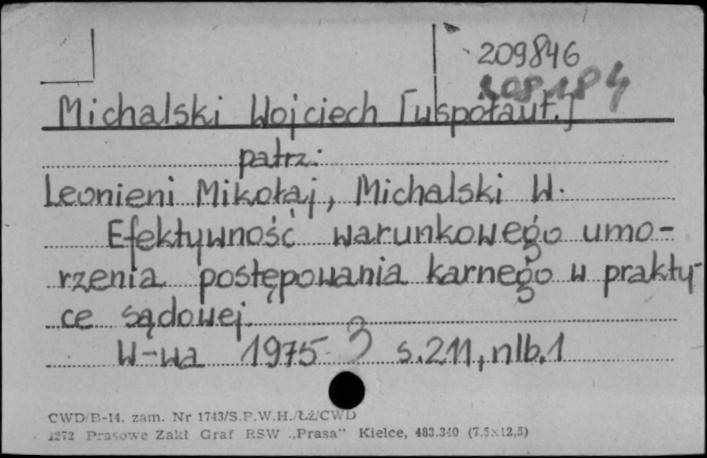 209846
208184
Michalski Wojciech [współaut.]
patrz:
Leonieni Mikołaj, Michalski W.
Efektywność warunkowego umo-
rzenia postępowania karnego w prakty-
ce sądowej.
W-wa 1975 s.211, nlb.1
CWD/B-14. zam. Nr 1743/S.P.W.H./ŁŹ/CWD
1272 Prasowe Zakł Graf RSW „Prasa" Kielce, 483.340 (7.5x12,5)